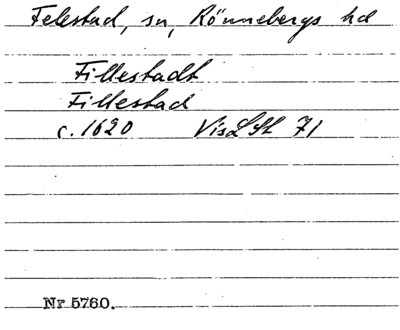 Felestad, sn, Rönnebergs hd
Fillestadt
Fillestad
c. 1620 VisLSt 71
Nr 5760.